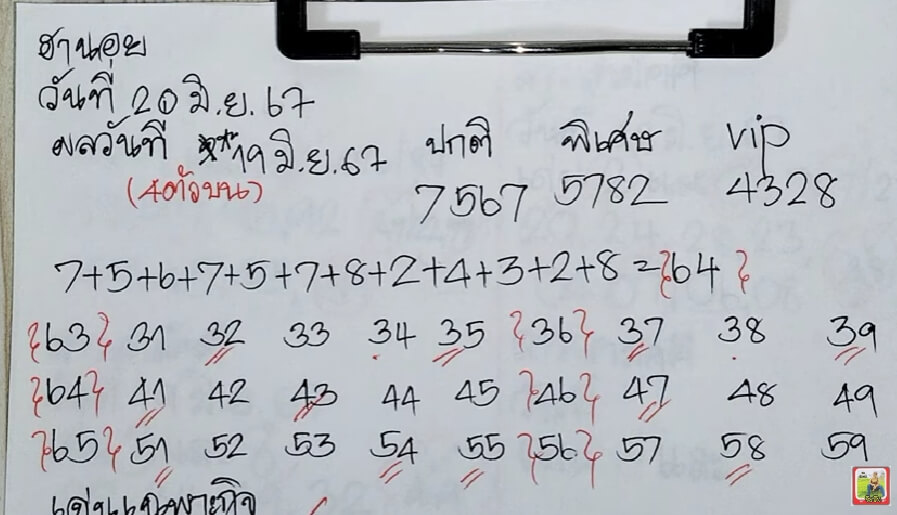 ฮานอย
วันที่ 20 มิ.ย. 67
ผลวันที่ **19 มิ.ย. 67 ปกติ พิเศษ vip
(4ตัวบน) 7567 5782 4328
7+5+6+7+5+7+8+2+4+3+2+8={64}
{63} 31 32 33 34 35 {36} 37 38 39
{64} 41 42 43 44 45 {46} 47 48 49
{65} 51 52 53 54 55 {56} 57 58 59